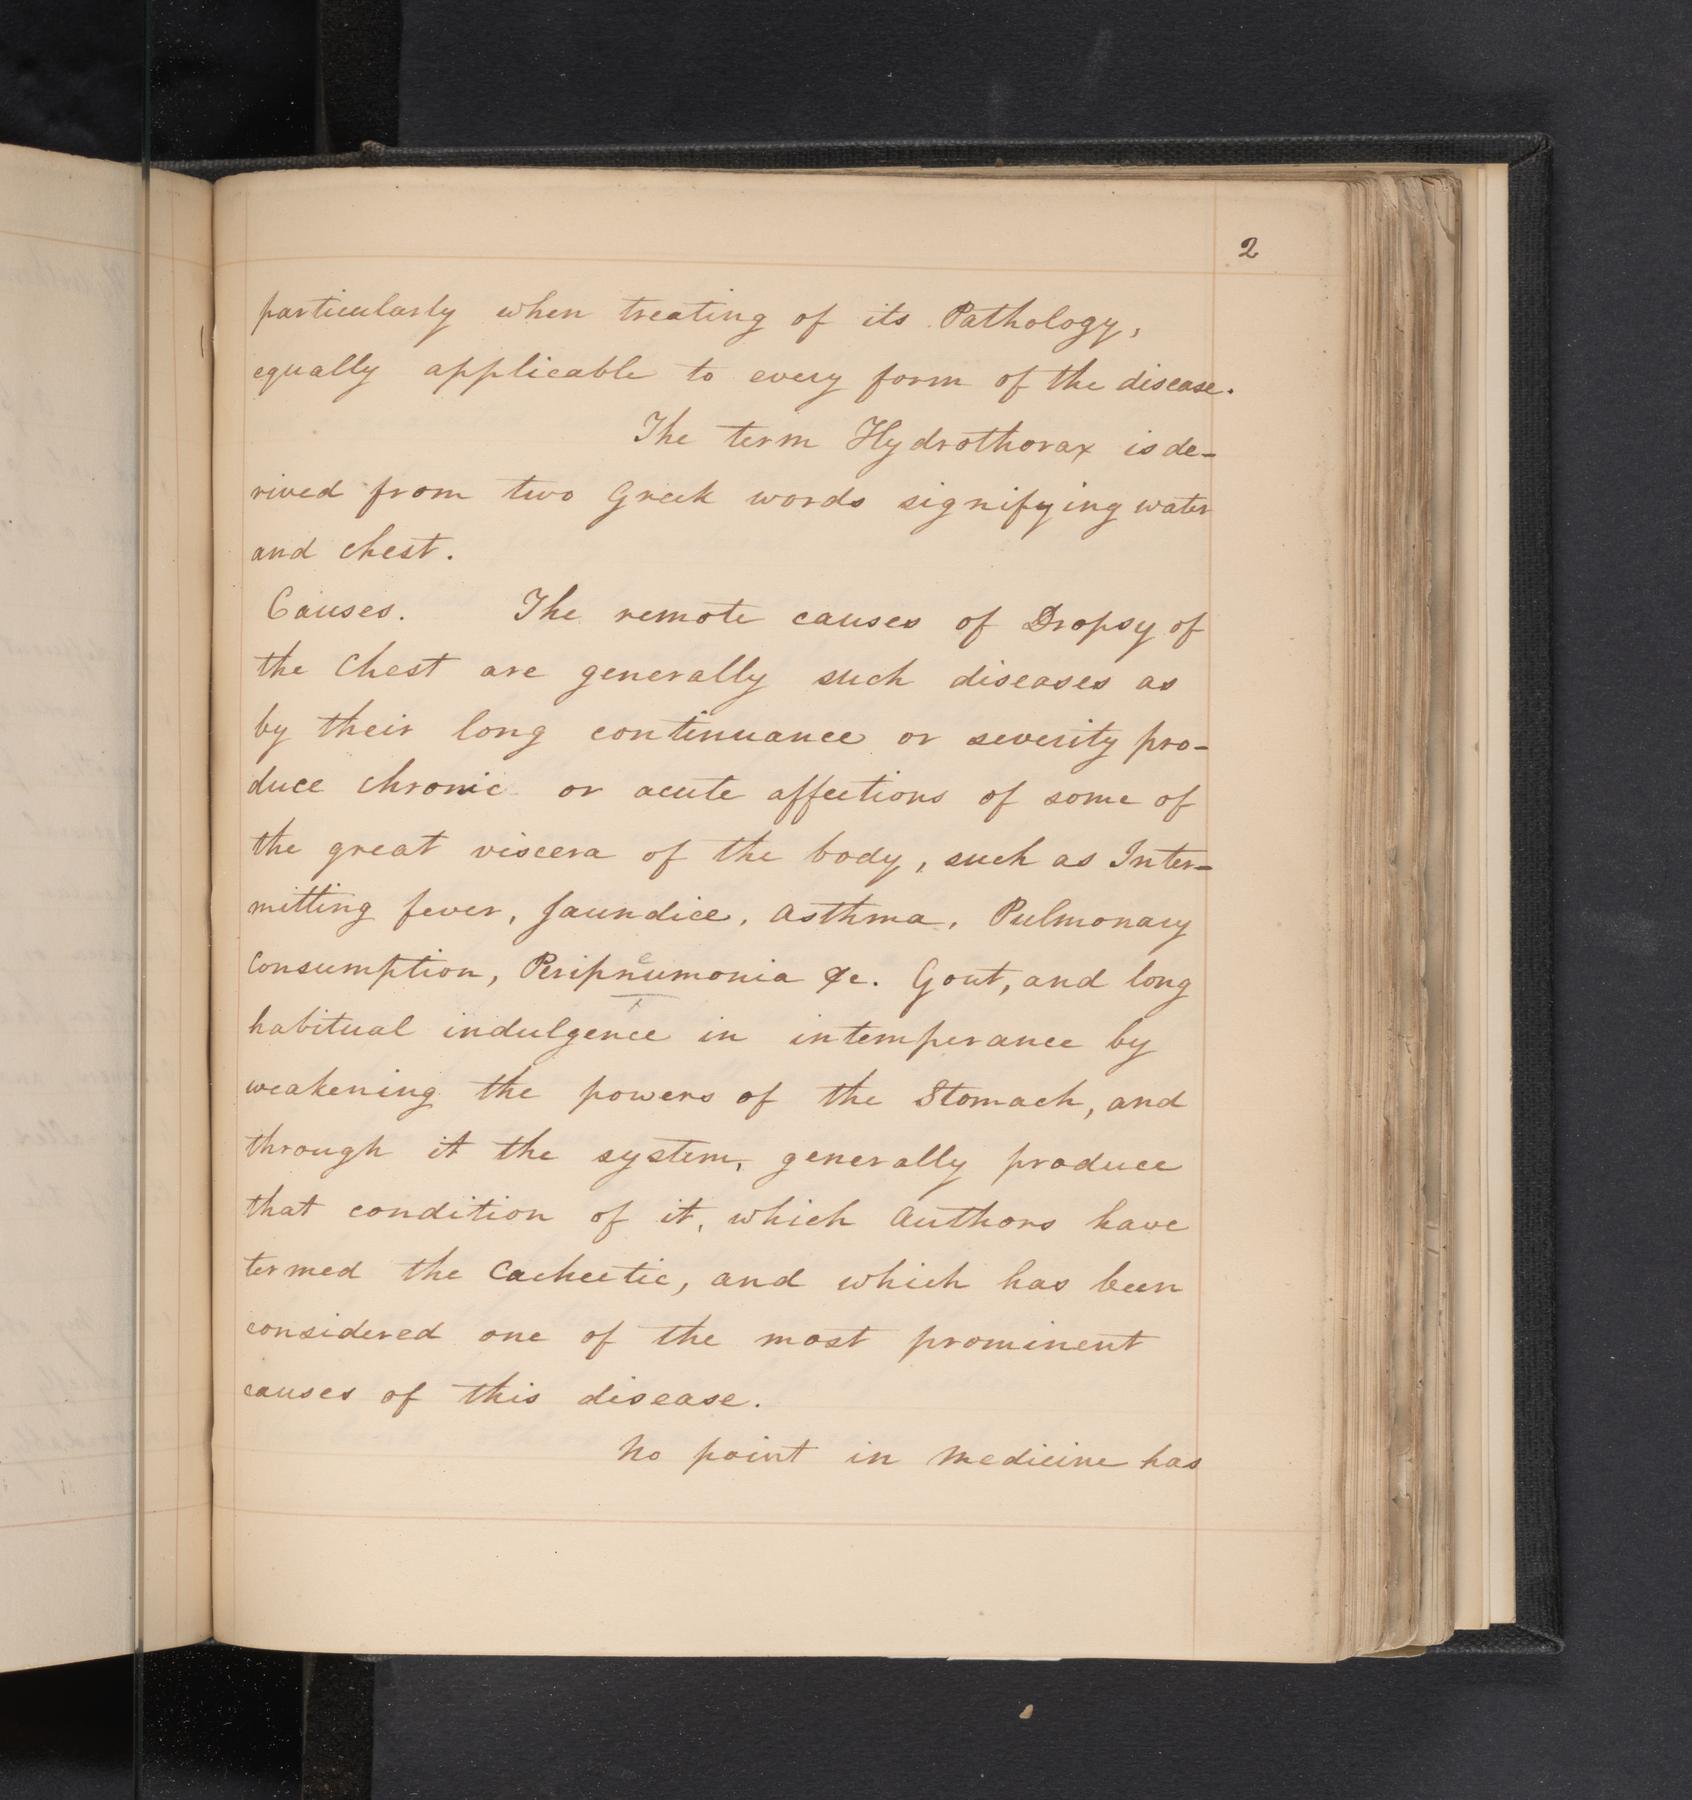 2
particularly when treating of its Pathology,
equally applicable to every form of the disease.
The term Hydrothorax is de-
rived from two Greek words signifying water
and chest.
Causes. The remote causes of Dropsy of
the Chest are generally such diseases as
by their long continuance or severity pro-
duce chronic or acute affections of some of
the great viscera of the body, such as Inter-
mitting fever, Jaundice, Asthma, Pulmonary
Consumption, Peripneumonia &c. Gout, and long
habitual indulgence in intemperance by
weakening the powers of the Stomach, and
through it the system, generally produce
that condition of it, which Authors have
termed the Cachectic, and which has been
considered one of the most prominent
causes of this disease.
No point in Medicine has